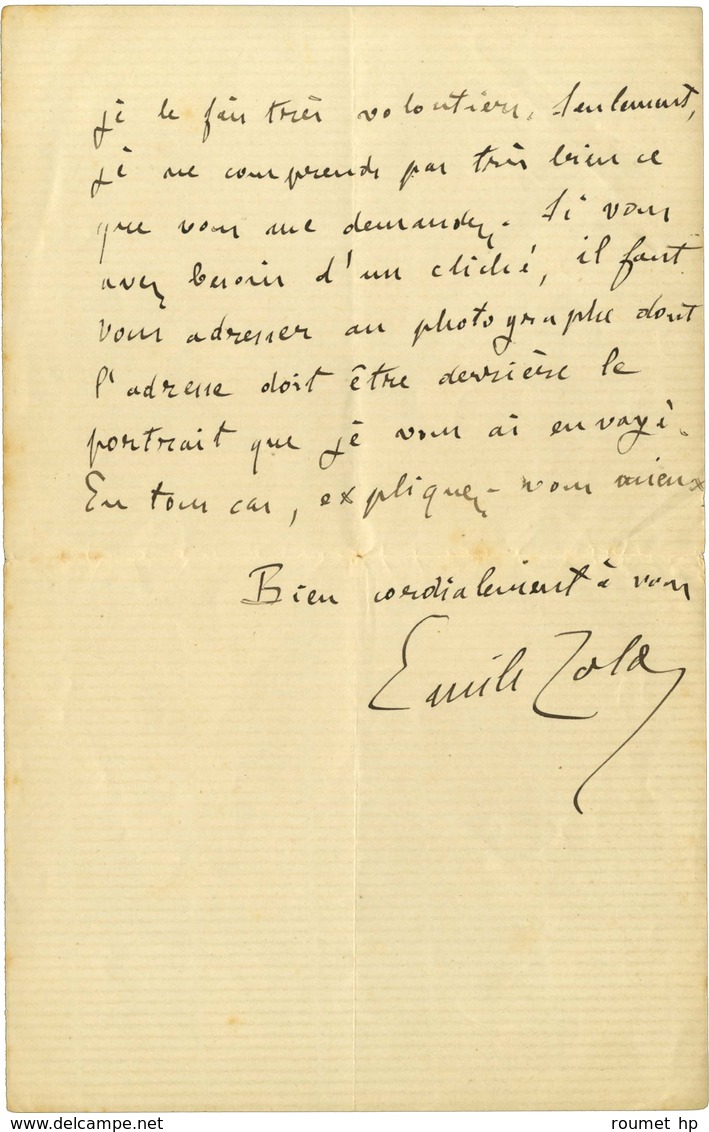 je le fais très volontiers. Seulement,
je ne comprends pas très bien ce
que vous me demandez. Si vous
avez besoin d'un cliché, il faut
vous adresser au photographe dont
l'adresse doit être derrière le
portrait que je vous ai envoyé.
En tous cas, expliquez-vous mieux
Bien cordialement à vous
Emile Zola
www.delcampe.net
roumet hp